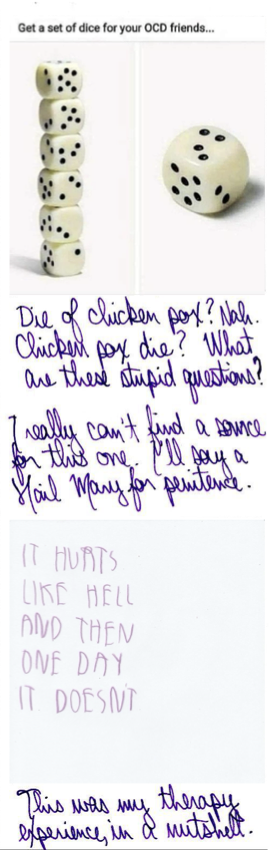 Get a set of dice for your OCD friends...
Die of chicken pox? Nah.
Chicken pox die? What
are these stupid questions?
I really can't find a source
for this one. I'll say a
Hail Mary for penitence.
IT HURTS
LIKE HELL
AND THEN
ONE DAY
IT DOESN'T
This was my therapy
experience, in a nutshell.